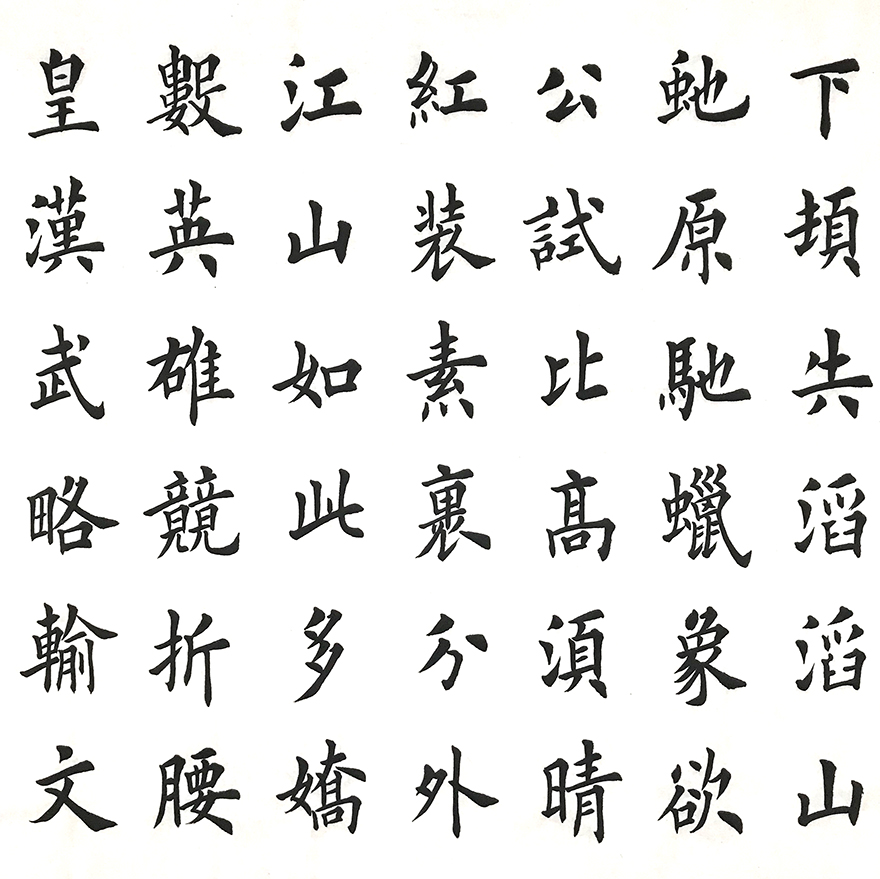 下頓失滔滔山
虵原馳蠟象欲
公試比髙湏晴
紅装素裹分外
江山如此多嬌
數英雄競折腰
皇漢武略輸文